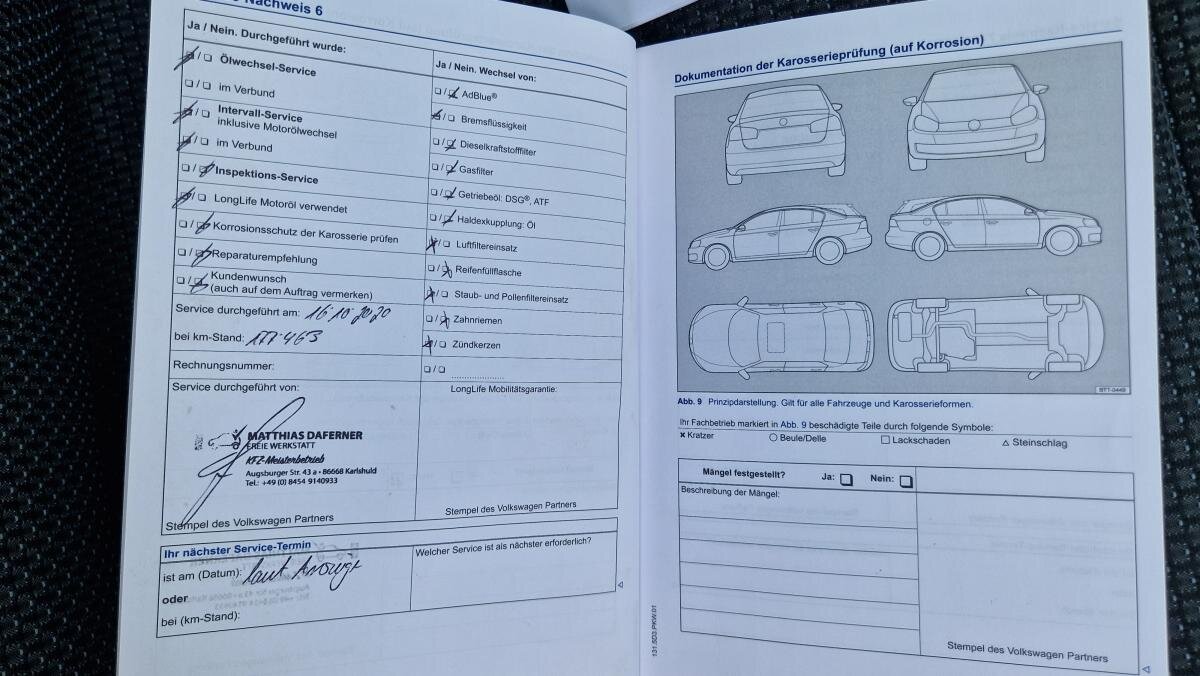 Nachweis 6
Ja / Nein. Durchgeführt wurde:
/ Ölwechsel-Service
/ im Verbund
/ Intervall-Service
inklusive Motorölwechsel
/ im Verbund
/ Inspektions-Service
/ LongLife Motoröl verwendet
/ Korrosionsschutz der Karosserie prüfen
/ Reparaturempfehlung
/ Kundenwunsch
(auch auf dem Auftrag vermerken)
Service durchgeführt am: 16.10.2020
bei km-Stand: 177.463
Rechnungsnummer:
Service durchgeführt von:
MATTHIAS DAFERNER
FREIE WERKSTATT
KFZ-Meisterbetrieb
Augsburger Str. 43 a • 86668 Karlshuld
Tel.: +49 (0) 8454 9140933
Stempel des Volkswagen Partners
Ja / Nein. Wechsel von:
/ AdBlue®
/ Bremsflüssigkeit
/ Dieselkraftstofffilter
/ Gasfilter
/ Getriebeöl: DSG®, ATF
/ Haldexkupplung: Öl
/ Luftfiltereinsatz
/ Reifenfüllflasche
/ Staub- und Pollenfiltereinsatz
/ Zahnriemen
/ Zündkerzen
/
LongLife Mobilitätsgarantie:
Stempel des Volkswagen Partners
Ihr nächster Service-Termin
ist am (Datum): laut Anzeige
oder
bei (km-Stand):
Welcher Service ist als nächster erforderlich?
Dokumentation der Karosserieprüfung (auf Korrosion)
BTT-0449
Abb. 9 Prinzipdarstellung. Gilt für alle Fahrzeuge und Karosserieformen.
Ihr Fachbetrieb markiert in Abb. 9 beschädigte Teile durch folgende Symbole:
× Kratzer ○ Beule/Delle □ Lackschaden △ Steinschlag
Mängel festgestellt? Ja: Nein:
Beschreibung der Mängel:
Stempel des Volkswagen Partners
131.5D3.PKW.01